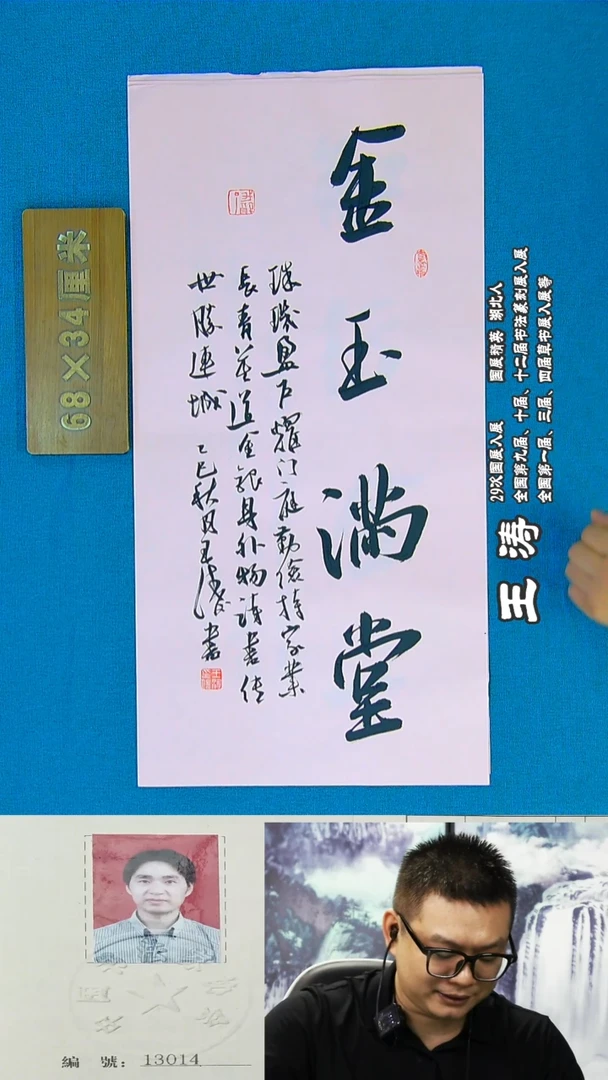 金玉满堂
珠璣盈户耀门庭勤儉持家業
長青莫道金銀身外物诗書传
世勝連城 乙巳秋月王涛書
68×34厘米
王涛
29次国展入展 国展精英 湖北人
全国第九届、十届、十二届书法篆刻展入展
全国第一届、三届、四届草书展入展等
編 號: 13014